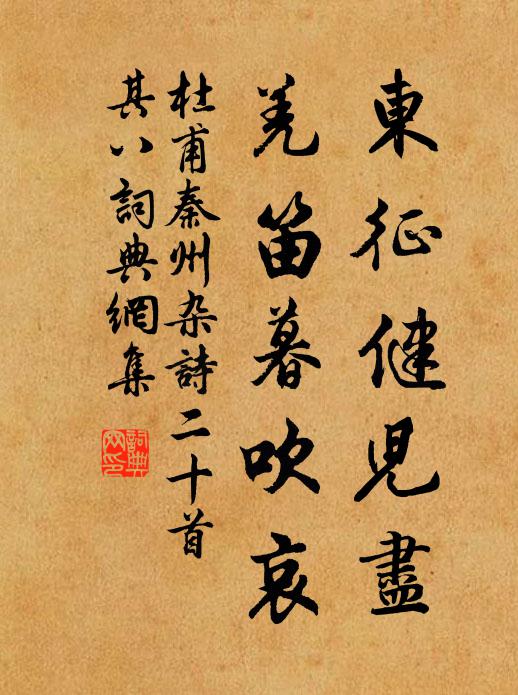 東征健兒盡
羌笛暮吹哀
杜甫秦州杂詩二十首
其八詞典網集
詞典网印